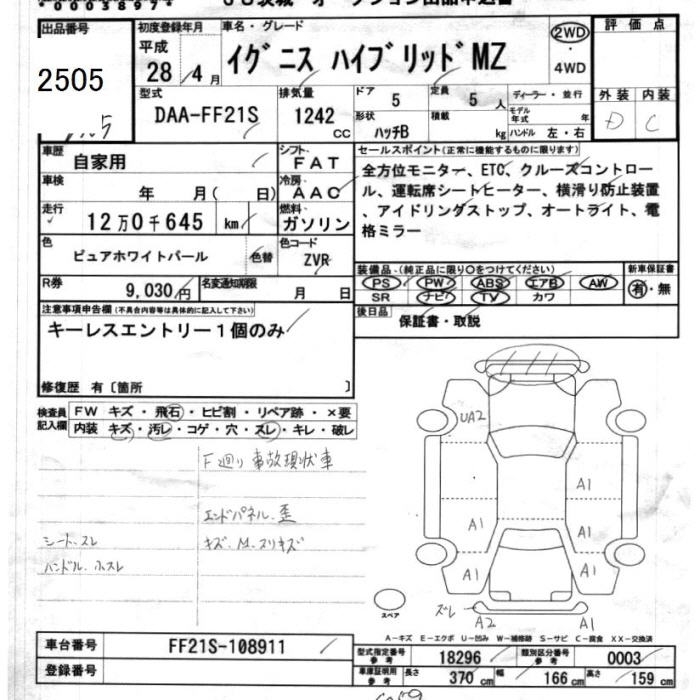 00038974
出品番号 初度登録年月 車名・グレード 評価点
2505
平成 28年 4月
イグニス ハイブリッド MZ
2WD・4WD
外装 内装
D C
型式 排気量 ドア 定員 ディーラー・並行
DAA-FF21S 1242cc 5 5人
形状 積載 モデル年式 年
ハッチB kg ハンドル 左・右
車歴 シフト セールスポイント(正常に機能するものに限ります)
自家用 FAT
全方位モニター、ETC、クルーズコントロー
ル、運転席シートヒーター、横滑り防止装置
、アイドリングストップ、オートライト、電
格ミラー
車検 年 月( 日) 冷房 AAC
走行 12万0千645 km 燃料 ガソリン
色 色コード
ピュアホワイトパール 色替 ZVR
装備品・(純正品に限り○をつけてください) 新車保証書
PS PW ABS エアB AW 有・無
SR ナビ TV カワ
R券 9,030円 名変通知期限 月 日
後日品 保証書・取説
注意事項申告欄(不具合内容等は具体的に記入して下さい)
キーレスエントリー1個のみ
修復歴 有〔箇所 〕
検査員記入欄
FW キズ・飛石・ヒビ割・リペア跡・×要
内装 キズ・汚レ・コゲ・穴・スレ・キレ・破レ
F廻り事故現状車
エンドパネル、歪
シート、スレ キズ、M、スリキズ
ハンドル、小スレ
UA2
A1
A1 A1
A1 A1
ズレ A2 A1
スペア
A-キズ E-エクボ U-凹み W-補修跡 S-サビ C-腐食 XX-交換済
車台番号 FF21S-108911
登録番号
型式指定番号参考 18296 類別区分番号参考 0003
車庫証明用参考 長さ 370cm 幅 166cm 高さ 159cm